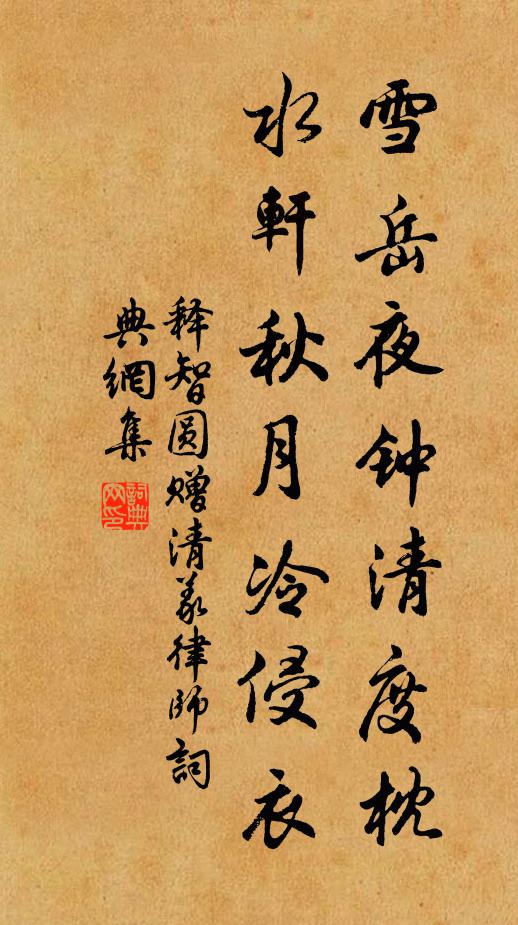 雪岳夜钟清度枕
水軒秋月冷侵衣
释智圆赠清义律师詞
典網集
詞典
网印